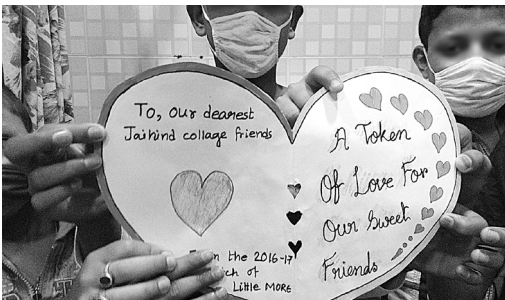 To, our dearest
Jaihind collage friends
the 2016-17
of
Little MORE
A Token
Of Love For
Our Sweet
Friends